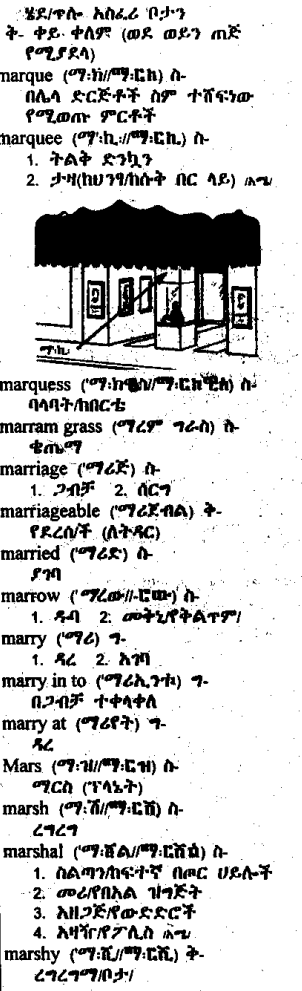 ሄደ/ጥሎ አስፈሪ ቦታን
ቅ- ቀይ ቀለም (ወደ ወይን ጠጅ
የሚያደላ)
marque (ማ፡ክ//ማ፡ርክ) ስ-
በሌላ ድርጅቶች ስም ተሸፍነው
የሚወጡ ምርቶች
marquee (ማ'፡ኪ፡//ማ፡ርኪ) ስ-
1. ትልቅ ድንኳን
2. ታዛ(ከህንፃ/ከሱቅ በር ላይ) /አሜ/
ማ፡ኪ፡
marquess ('ማ፡ክዊስ//ማ፡ርክዊስ) ስ-
ባላባት/ከበርቴ
marram grass (ማረም ግራስ) ስ-
ቄጤማ
marriage (ማሪጅ) ስ-
1. ጋብቻ 2. ሰርግ
marriageable (ማሪጀብል) ቅ-
የደረሰ/ች (ለትዳር)
married (ማሪድ) ስ-
ያገባ
marrow ('ማረው//-ሮው) ስ-
1. ዱባ 2. መቅኒ/የቅልጥም/
marry (ማሪ) ግ-
1. ዳረ 2. አገባ
marry in to (ማሪኢንቱ) ግ-
በጋብቻ ተቀላቀለ
marry at (ማሪየት) ግ-
ዳረ
Mars (ማ፡ዝ//ማ፡ርዝ) ስ-
ማርስ (ፕላኔት)
marsh (ማ፡ሽ//ማ፡ርሽ) ስ-
ረግረግ
marshal ('ማ፡ሸል//ማ፡ርሸል) ስ-
1. ስልጣን/ከፍተኛ በጦር ሀይሎች
2. መሪ/የበአል ዝግጅት
3. አዘጋጅ/የውድድሮች
4. አዛዥ/የፖሊስ /አሜ/
marshy (ማ፡ሺ//ማ፡ርሺ) ቅ-
ረግረግማ/ቦታ/